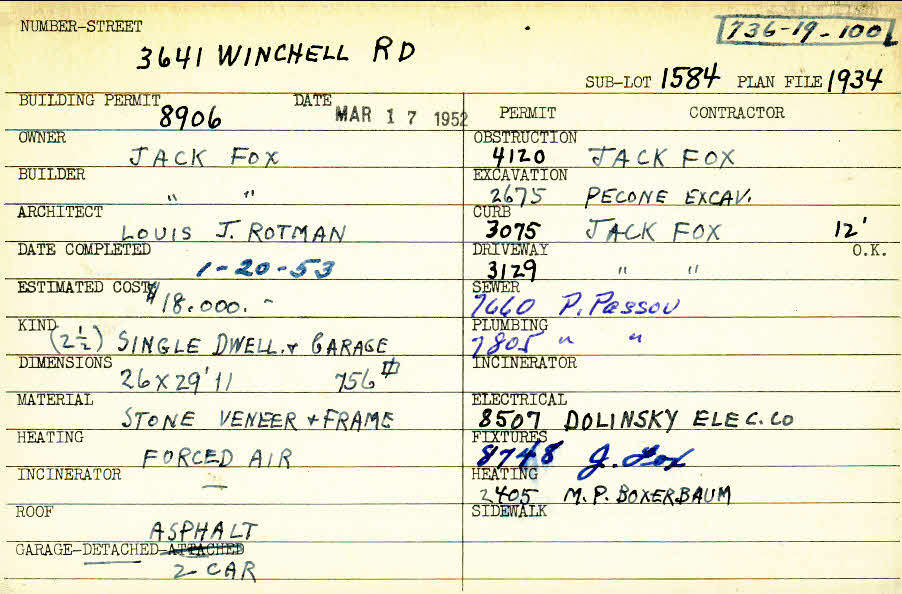 NUMBER-STREET
736-19-100
3641 WINCHELL RD
SUB-LOT 1584 PLAN FILE 1934
BUILDING PERMIT 8906 DATE MAR 17 1952
PERMIT CONTRACTOR
OWNER JACK FOX
OBSTRUCTION 4120 JACK FOX
BUILDER " "
EXCAVATION 2675 PECONE EXCAV.
ARCHITECT LOUIS J. ROTMAN
CURB 3075 JACK FOX 12'
DATE COMPLETED 1-20-53
DRIVEWAY 3129 " " O.K.
ESTIMATED COST $18.000.-
SEWER 7660 P. Passov
KIND (2½) SINGLE DWELL. + GARAGE
PLUMBING 7805 " "
DIMENSIONS 26 X 29'11 756
INCINERATOR
MATERIAL STONE VENEER + FRAME
ELECTRICAL 8507 DOLINSKY ELEC. CO
HEATING FORCED AIR
FIXTURES 8748 J. Fox
INCINERATOR —
HEATING 2405 M.P. BOXERBAUM
ROOF ASPHALT
SIDEWALK
GARAGE-DETACHED-ATTACHED
2-CAR